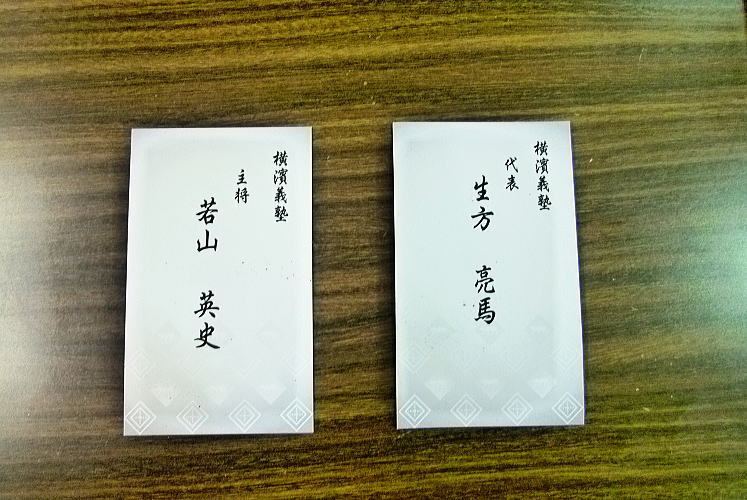 横濱義塾
代表
生方 亮馬
横濱義塾
主将
若山 英史